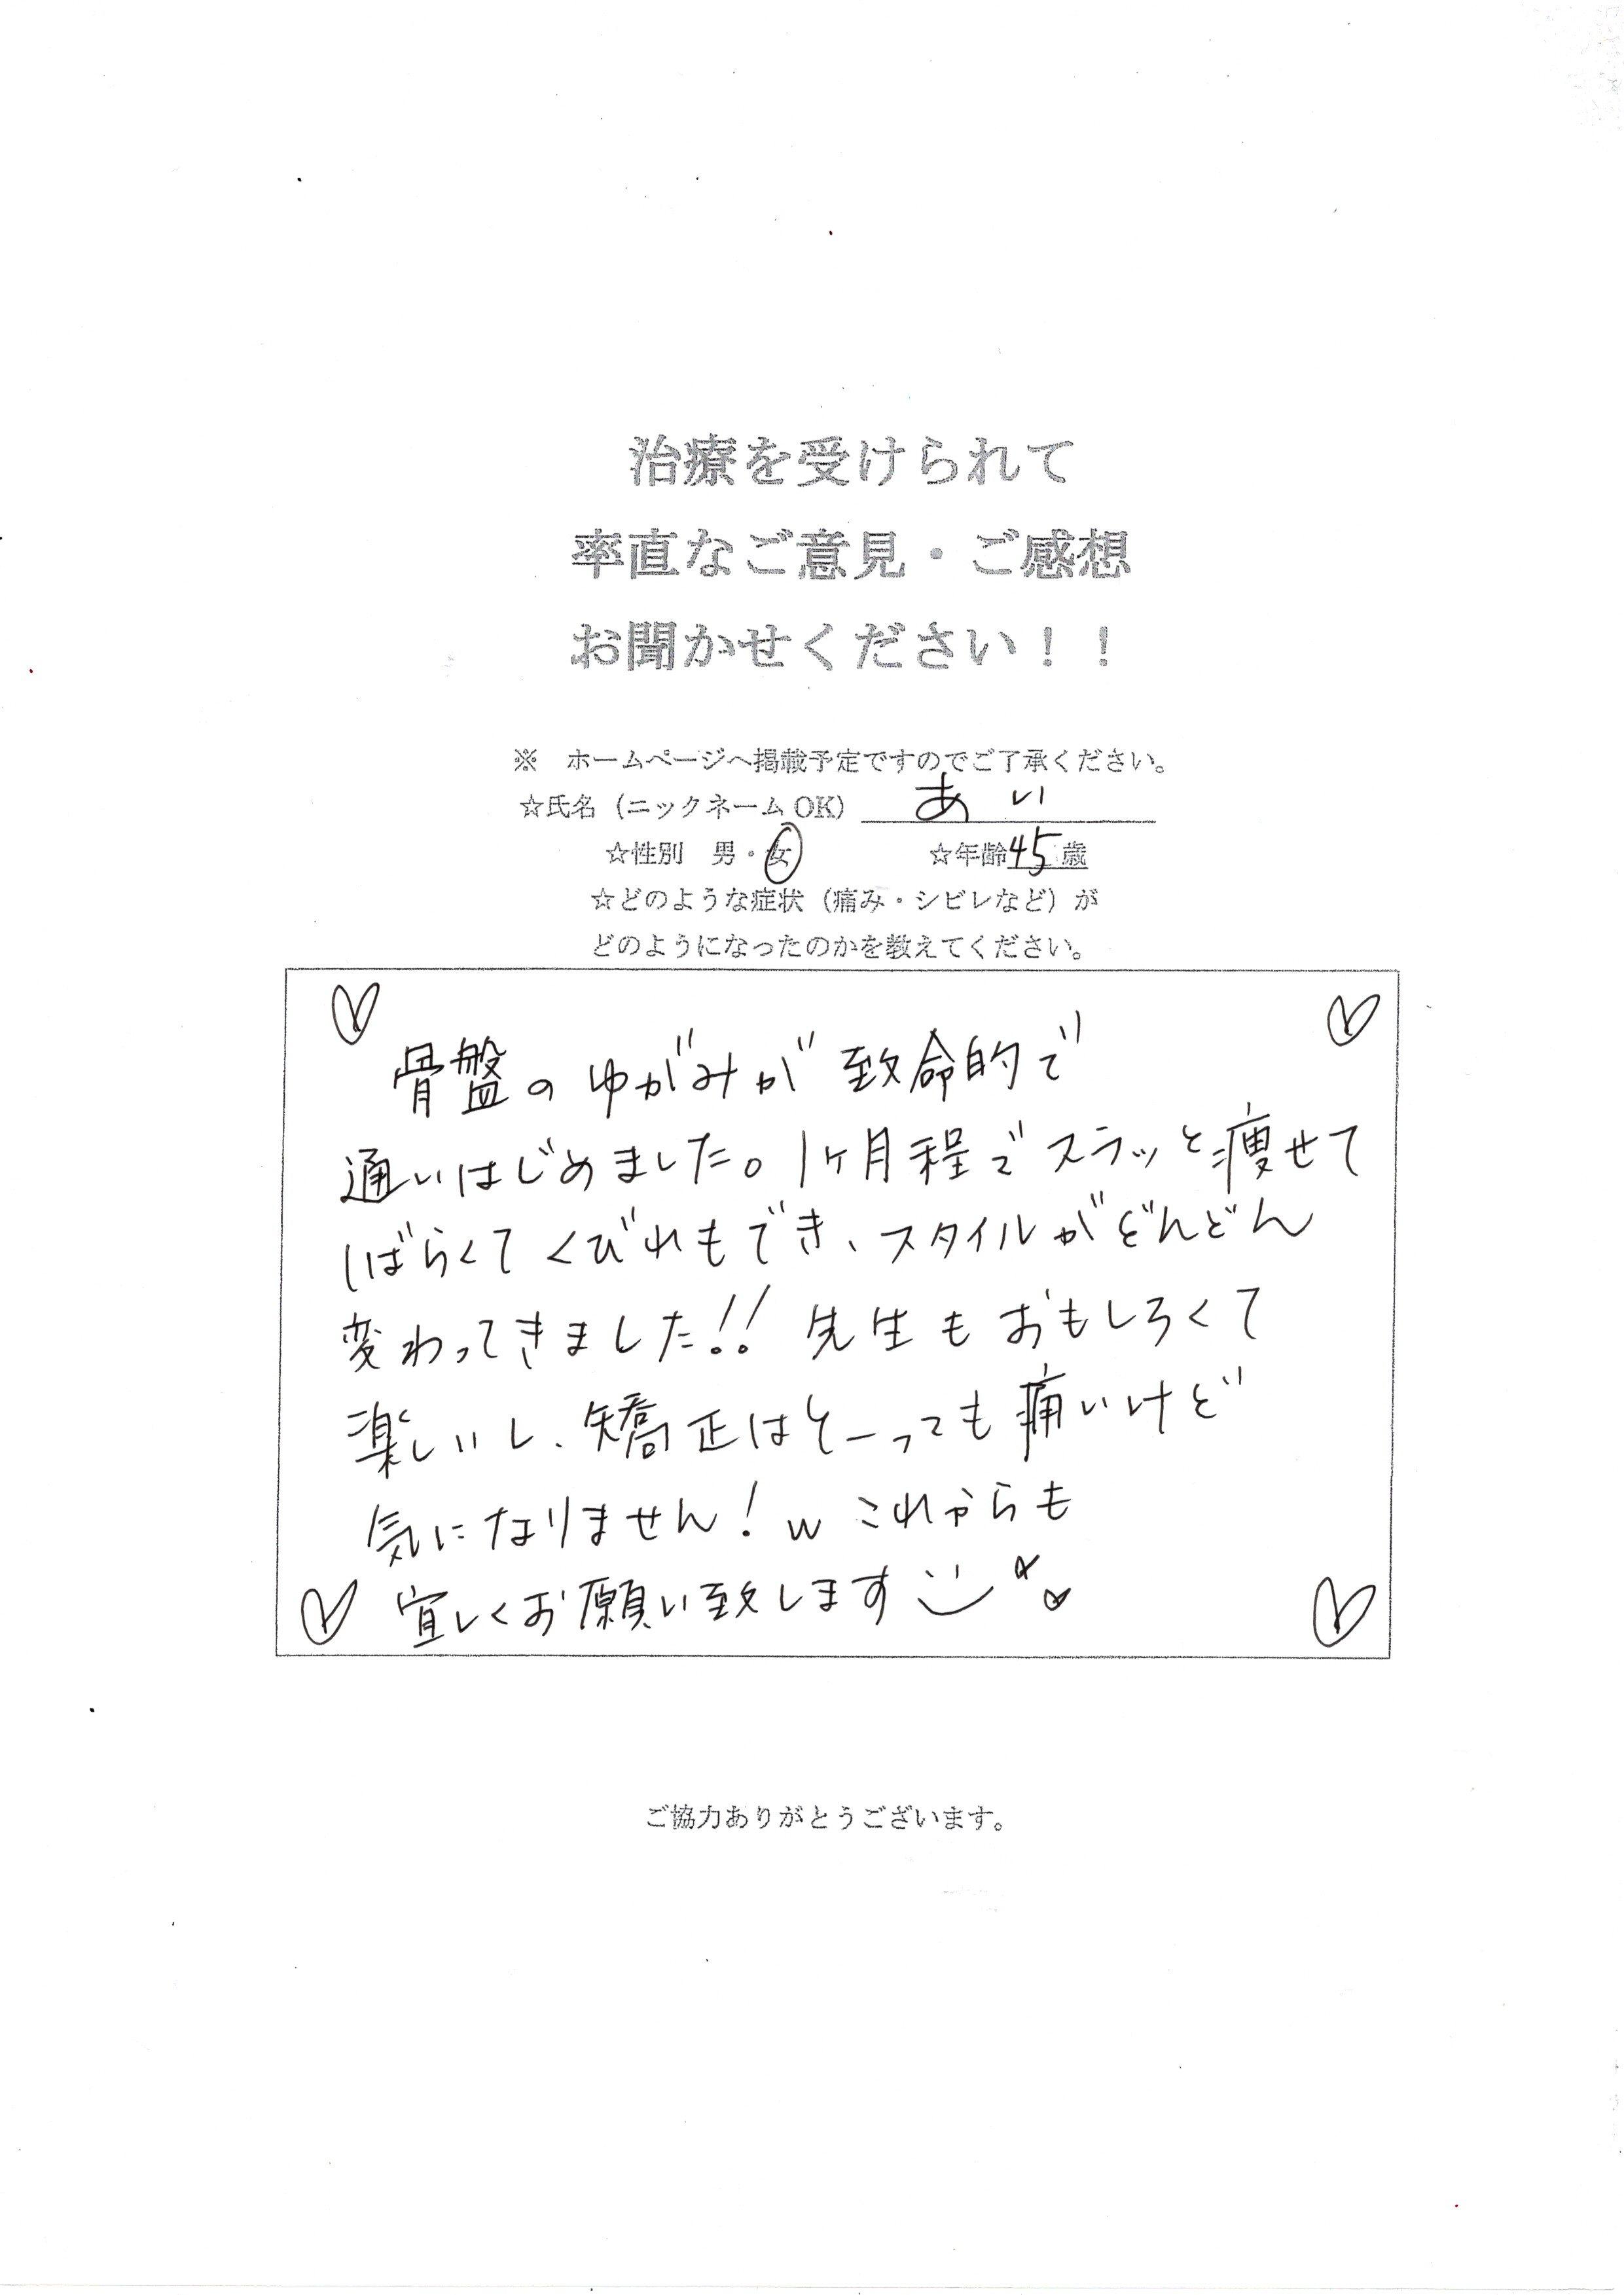 治療を受けられて
率直なご意見・ご感想
お聞かせください！！
※　ホームページへ掲載予定ですのでご了承ください。
☆氏名（ニックネームOK） あい
☆性別　男・女　☆年齢45歳
☆どのような症状（痛み・シビレなど）が
どのようになったのかを教えてください。
骨盤のゆがみが致命的で
通いはじめました。1ヶ月程でスラッと痩せて
しばらくてくびれもでき、スタイルがどんどん
変わってきました!! 先生もおもしろくて
楽しいし、矯正はとーっても痛いけど
気になりません！w これからも
宜しくお願い致します
ご協力ありがとうございます。